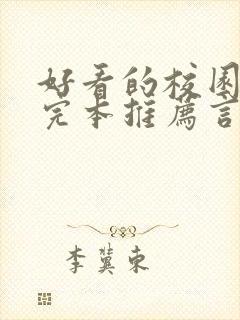 好看的校园
完本推荐言
李冀东